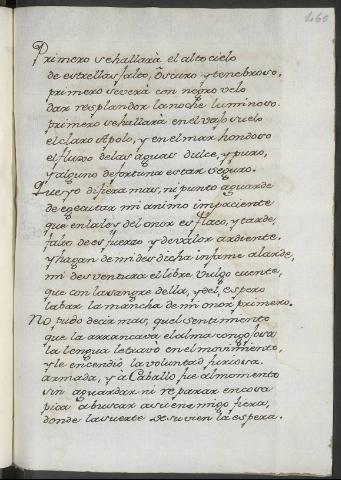 160
Primero se hallarà el alto cielo
de estrellas falto, õscuro y tenebroso,
primero severà con negro velo
dar resplandor la noche luminoso.
primero se hallarà en el vajo suelo
el claro Apolo, y en el mar hondoso
el fluxo delas aguas dulce, y puro,
y alguno de fortuna estar seguro.
Que yo difiera mas, ni punto aguarde
de egecutar mi animo impaciente
que en la ley del onor es flaco, y tarde,
falto de esfuerzo y de valor ardiente.
y hagan de mi desdicha infame alarde,
mi desventura el libre vulgo cuente,
que con la sangre della, y del, espero
labar la mancha de mi onor primero.
No pudo decir mas, quel sentimiento
que la arrancava el alma congojosa
la lengua le travò en el movimiento,
y le encendiò la voluntad furiosa.
armada, y à Caballo fue al momento
sin aguardar ni reparar en cosa
para a buscar a su enemigo fiera,
donde la suerte de su vien la espera.